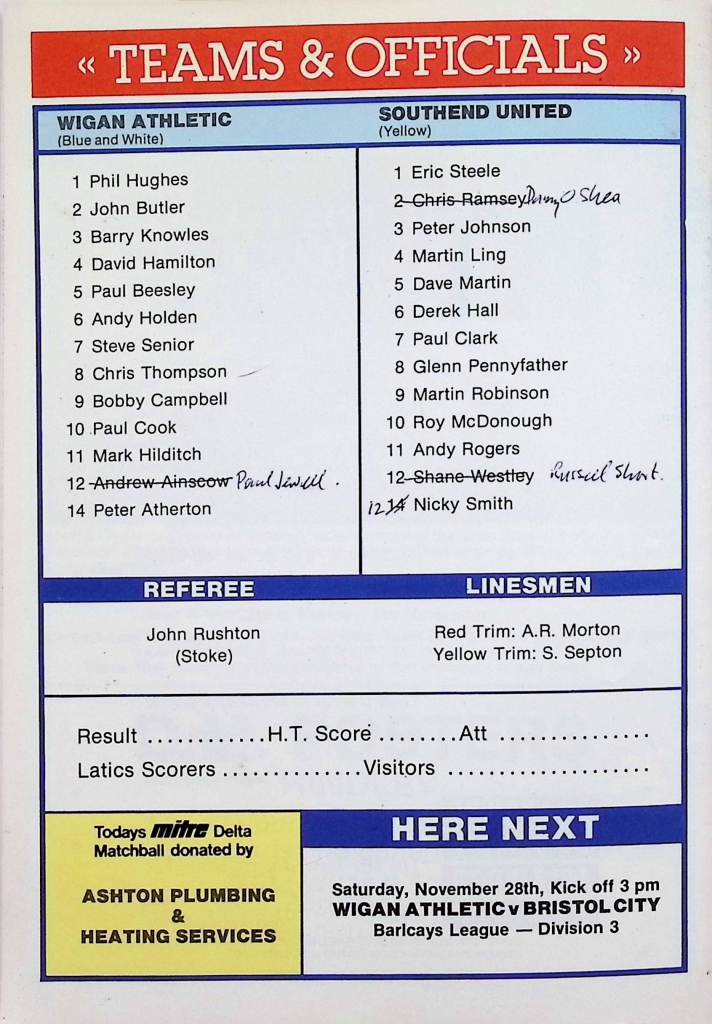 « TEAMS & OFFICIALS »
WIGAN ATHLETIC
(Blue and White)
1 Phil Hughes
2 John Butler
3 Barry Knowles
4 David Hamilton
5 Paul Beesley
6 Andy Holden
7 Steve Senior
8 Chris Thompson
9 Bobby Campbell
10 Paul Cook
11 Mark Hilditch
12 Andrew Ainscow Paul Jewell.
14 Peter Atherton
SOUTHEND UNITED
(Yellow)
1 Eric Steele
2 Chris Ramsey Danny O Shea
3 Peter Johnson
4 Martin Ling
5 Dave Martin
6 Derek Hall
7 Paul Clark
8 Glenn Pennyfather
9 Martin Robinson
10 Roy McDonough
11 Andy Rogers
12 Shane Westley Russell Short.
12 14 Nicky Smith
REFEREE
John Rushton
(Stoke)
LINESMEN
Red Trim: A.R. Morton
Yellow Trim: S. Septon
Result ............H.T. Score ........Att ...............
Latics Scorers ..............Visitors ....................
Todays mitre Delta
Matchball donated by
ASHTON PLUMBING
&
HEATING SERVICES
HERE NEXT
Saturday, November 28th, Kick off 3 pm
WIGAN ATHLETIC v BRISTOL CITY
Barlcays League — Division 3